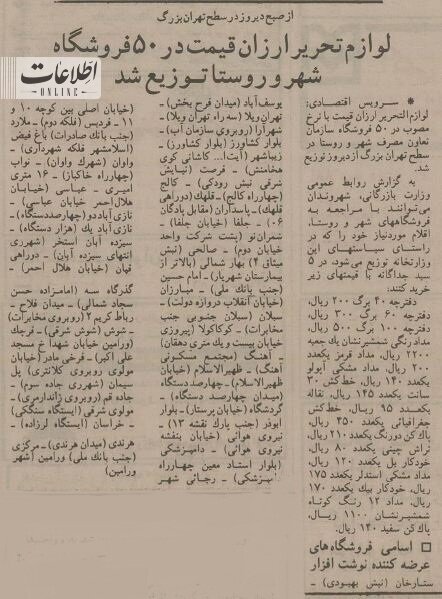 از صبح دیروز در سطح تهران بزرگ
لوازم تحریر ارزان قیمت در ۵۰ فروشگاه
شهر و روستا توزیع شد
اطلاعات
ONLINE
* سرویس اقتصادی:
لوازم التحریر ارزان قیمت با نرخ
مصوب در ۵۰ فروشگاه سازمان
تعاون مصرف شهر و روستا در
تهران بزرگ از دیروز توزیع
شد.
به گزارش روابط عمومی
وزارت بازرگانی، شهروندان
می‌توانند با مراجعه به
فروشگاههای شهر و روستا،
اقلام موردنیاز خود را که در
راستای سیاستهای این
وزارتخانه توزیع می‌شود، در ۵
سبد جداگانه با قیمتهای زیر
خرید کنند:
دفترچه ۴۰ برگ ۲۰۰ ریال،
دفترچه ۶۰ برگ ۳۰۰ ریال،
دفترچه ۱۰۰ برگ ۵۰۰ ریال،
مداد رنگی شمشیرنشان یك جعبه
۲۲۰۰ ریال، مداد قرمز یکعدد
۲۰۰ ریال، مداد مشکی آپولو
یکعدد ۱۴۰ ریال، خط‌کش ۳۰
سانت یکعدد ۱۴۵ ریال، نقاله
یکعدد ۹۵ ریال، خط‌کش
جغرافیائی یکعدد ۴۵۰ ریال،
پاك کن دورنگ یکعدد ۲۱۰ ریال،
تراش چینی یکعدد ۸۰ ریال،
خودکار بل یکعدد ۱۲۰ ریال،
مداد مشکی استدلر یکعدد ۱۷۵
ریال، خودکار بیك یکعدد ۱۷۰
ریال، مداد ۱۲ رنگ کوتاه
شمشیرنشان ۱۱۰۰ ریال،
پاك کن سفید ۱۴۰ ریال.
□ اسامی فروشگاه‌های
عرضه کننده نوشت افزار
ستارخان (نبش بهبودی) ـ
یوسف‌آباد (میدان فرح بخش) ـ
تهران‌ویلا (سه‌راه تهران ویلا) ـ
شهرآرا (روبروی سازمان آب) ـ
بلوار کشاورز (بلوار کشاورز) ـ
زیباشهر (آیت‌ا... کاشانی کوی
هخامنش) ـ فرصت (نیایش
شرقی نبش رودکی) ـ کالج
(چهارراه کالج) ـ قلهك (دوراهی
قلهك) ـ پاسداران (مقابل پادگان
۰۶) ـ جلفا (خیابان جلفا) ـ
شمران‌نو (پشت شرکت واحد
میدان دوم) ـ صالحی (نبش
میثاق ۴) بهار شمالی (بالاتر از
بیمارستان شهریار) ـ امام حسین
(جنب بانك ملی) ـ مبارزان
(خیابان انقلاب دروازه دولت) ـ
سبلان (سبلان جنوبی جنب
مخابرات) ـ کوکاکولا (پیروزی
خیابان بیست ویك متری دهقان)
ـ آهنگ (مجتمع مسکونی
آهنگ) ـ ظهیرالاسلام (خیابان
ظهیرالاسلام) ـ چهارصد دستگاه
(میدان چهارصد دستگاه) ـ
گردشگاه (خیابان پرستار) ـ بلوار
ابوذر (جنب پارك نقشه ۱۳) ـ
نیروی هوائی (خیابان بنفشه
نیروی هوائی) ـ دامپزشکی
(بلوار استاد معین چهارراه
دامپزشکی) ـ رجائی شهر
(خیابان اصلی بین کوچه ۱۰ و
۱۱ ـ فردیس (فلکه دوم) ـ ملارد
(جنب بانك صادرات) باغ فیض
(اسلامشهر فلکه شهرداری) ـ
واوان (شهرك واوان) ـ نواب
(چهارراه خاکباز) ـ ۱۶ متری
امیری ـ عباسی (خیابان
هلال‌احمر خیابان عباسی) ـ
نازی‌آباد دو (چهارصد دستگاه) ـ
نازی‌آباد یك (هزار دستگاه) ـ
سیزده آبان استخر (شهرری
انتهای سیزده آبان) ـ دوراهی
قپان (خیابان هلال احمر) ـ
گذرگاه سه (امامزاده حسن
سجاد شمالی) ـ میدان فلاح ـ
رباط کریم ۲ (روبروی مخابرات)
ـ شوش (شوش شرقی) ـ قرچك
(ورامین خیابان شهدا خ مسجد
علی اکبر) ـ فرخی مادر (خیابان
مولوی روبروی کلانتری) پل
سیمان (شهرری جاده سوم) ـ
جاده قم (روبروی ژاندارمری) ـ
مولوی شرقی (ایستگاه سنگکی)
ـ خراسان (ایستگاه لرزاده) ـ
هرندی (میدان هرندی) ـ مرکزی
(جنب بانك ملی) ورامین (شهر
ورامین)